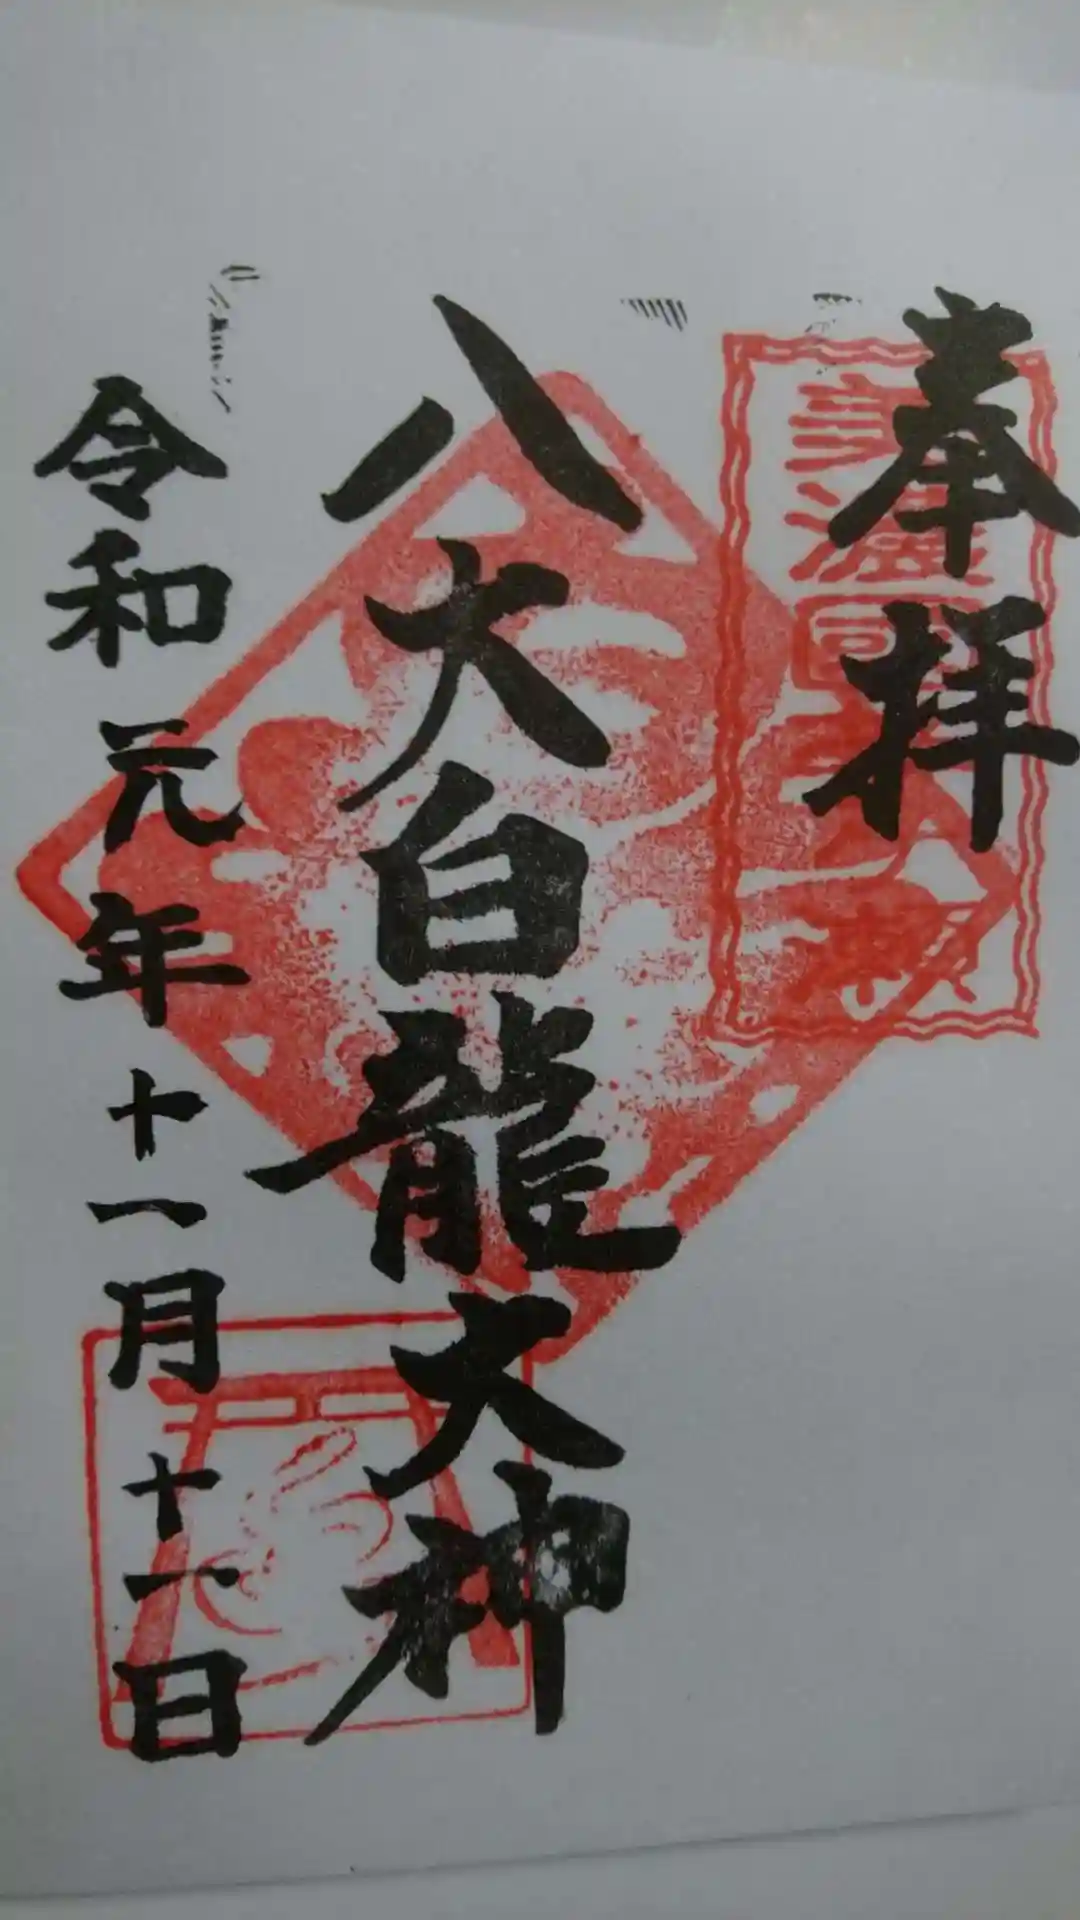 奉拝
八大白龍大神
令和元年十一月十一日